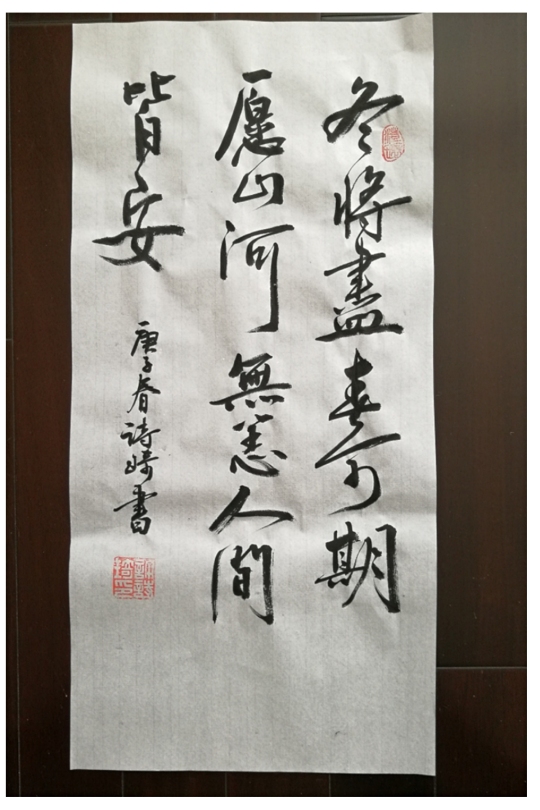 冬將盡春可期
愿山河無恙人間
皆安
庚子春诗崎書